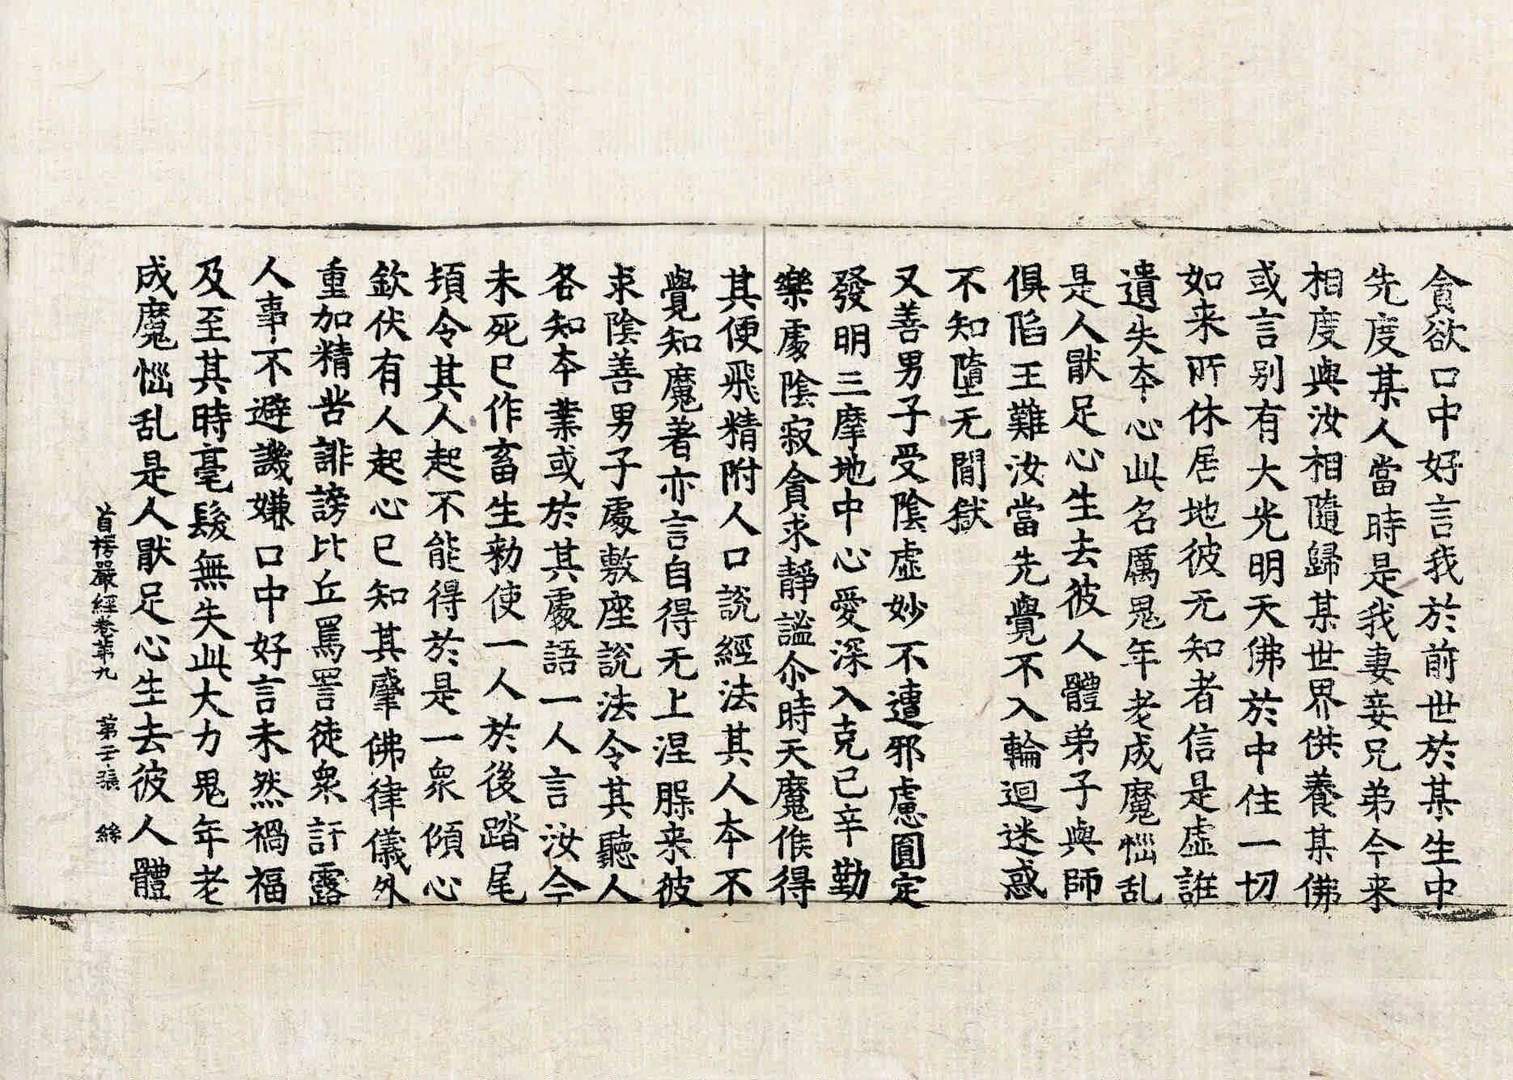 貪欲口中好言我於前世於某生中
先度某人當時是我妻妾兄弟今来
相度與汝相隨歸某世界供養某佛
或言别有大光明天佛於中住一切
如来所休居地彼无知者信是虛誑
遺失夲心此名厲鬼年老成魔惱乱
是人猒足心生去彼人體弟子與師
俱陷王難汝當先覺不入輪迴迷惑
不知墮无間獄
又善男子受陰虛妙不遭邪慮圓定
發明三摩地中心愛深入克己辛勤
樂處陰寂貪求靜謐尒時天魔候得
其便飛精附人口說經法其人夲不
覺知魔著亦言自得无上涅槃来彼
求陰善男子處敷座說法令其聽人
各知夲業或於其處語一人言汝今
未死已作畜生勑使一人於後踏尾
頓令其人起不能得於是一衆傾心
欽伏有人起心已知其肇佛律儀外
重加精苦誹謗比丘罵詈徒衆訐露
人事不避譏嫌口中好言未然禍福
及至其時毫髮無失此大力鬼年老
成魔惱乱是人猒足心生去彼人體
首楞嚴經卷第九 第二十張 絲